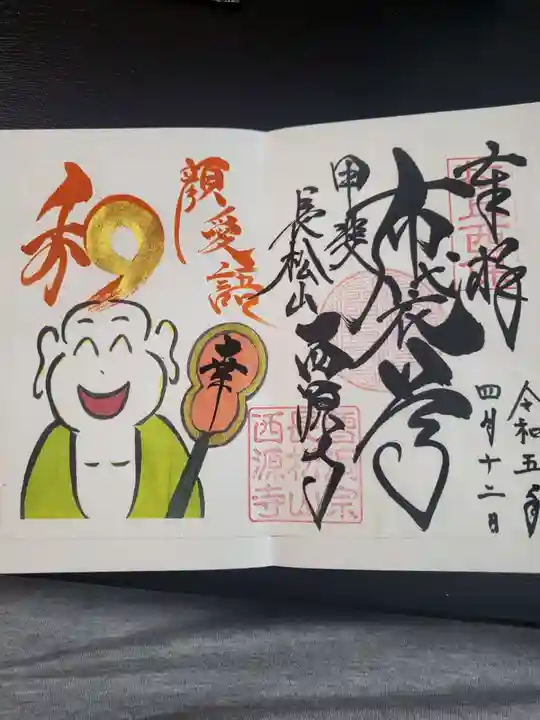 奉拝
布袋尊
甲斐
長松山
西源寺
令和五年
四月十二日
長松山
西源寺
和
顔愛語
幸